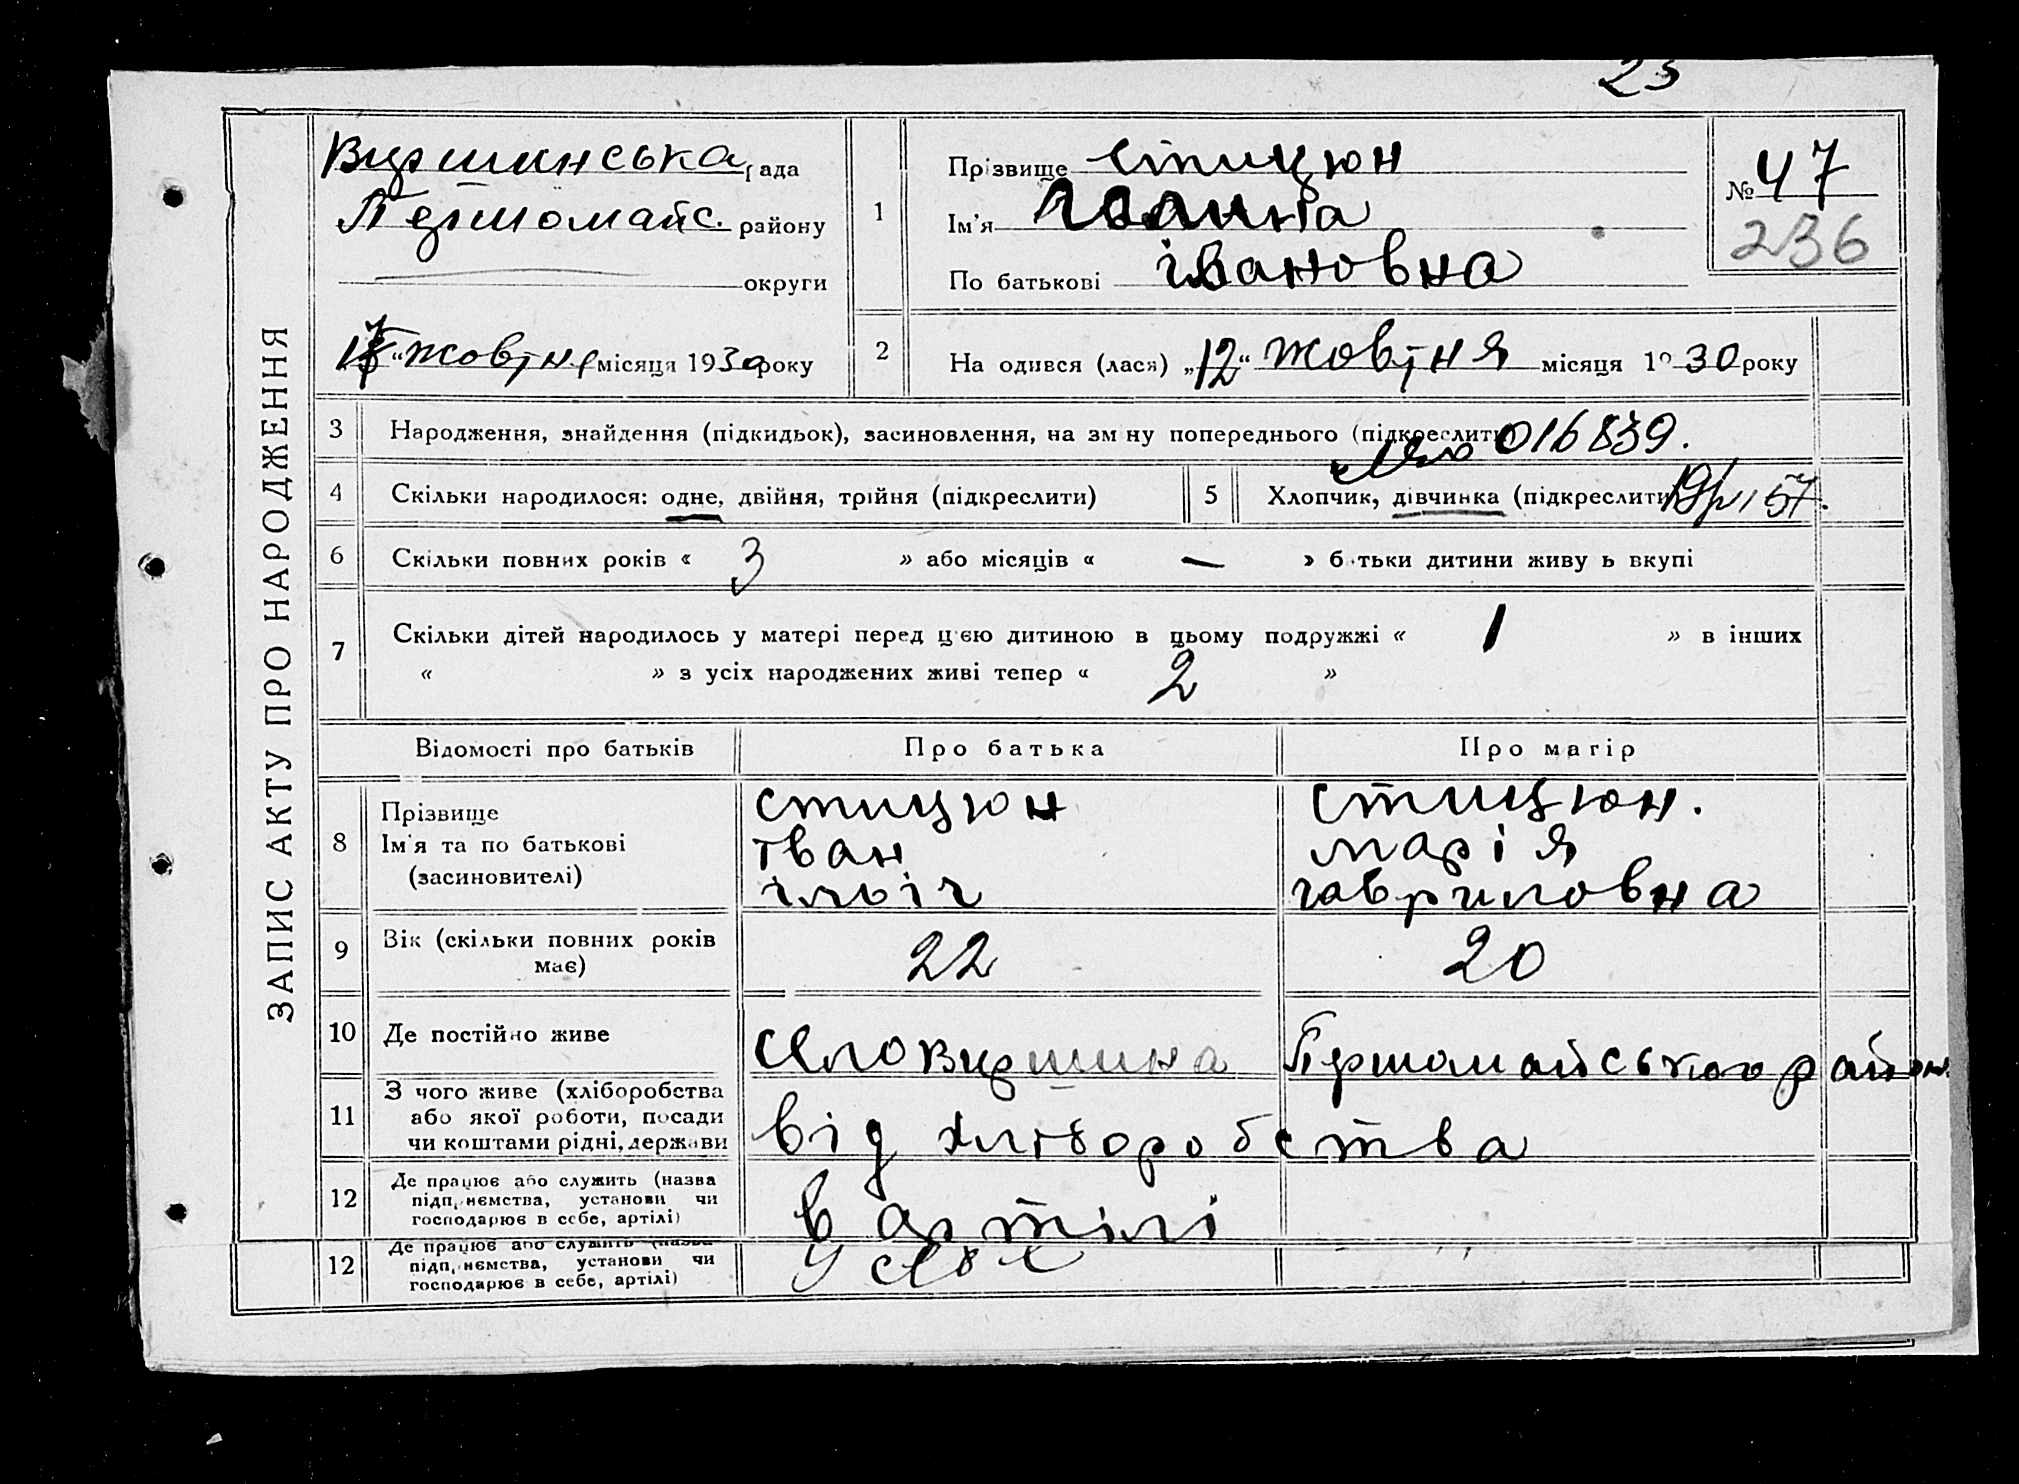 23
ЗАПИС АКТУ ПРО НАРОДЖЕННЯ
Вершинська рада
Першомайс. району
округи
жовтня місяця 1930 року
1
Прізвище Стицюн
Ім'я Галина
По батькові івановна
№ 47
236
2
На одився (лася) „12“ жовтня місяця 1930 року
3
Народження, знайдення (підкидьок), засиновлення, на зм ну попереднього (підкреслити)
016839.
4
Скільки народилося: одне, двійня, трійня (підкреслити)
5
Хлопчик, дівчинка (підкреслити)
57.
6
Скільки повних років « 3 » або місяців « — » б тьки дитини живу ь вкупі
7
Скільки дітей народилось у матері перед цією дитиною в цьому подружжі « 1 » в інших
« » з усіх народжених живі тепер « 2 »
Відомості про батьків Про батька Про матір
8
Прізвище
Ім'я та по батькові
(засиновителі)
Стицюн
Іван
ільіч
Стицюн.
марія
гавриловна
9
Вік (скільки повних років
має)
22
20
10
Де постійно живе
село Вершина Першомайського район.
11
З чого живе (хліборобства
або якої роботи, посади
чи коштами рідні, держави
від хліборобства
12
Де працює або служить (назва
підприємства, установи чи
господарює в себе, артілі)
в артілі
12
Де працює або служить (назва
підприємства, установи чи
господарює в себе, артілі)
у себе